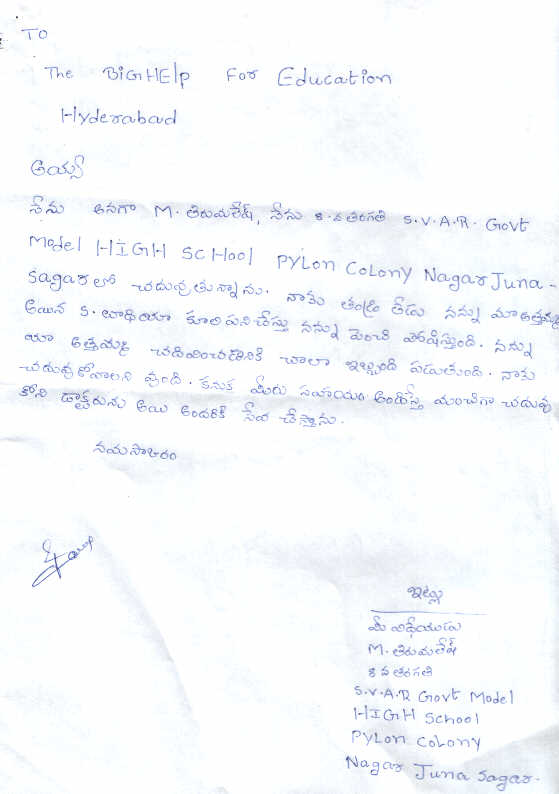 TO
The BiGHElp For Education
Hyderabad
అయ్యా
నేను అనగా M. తిరుమలేష్, నేను 8 వ తరగతి S.V.A.R. Govt
Model HIGH SCHOOl PYLON COLONY Nagar Juna-
Sagar లో చదువుతున్నాను. నాకు తండ్రి లేడు నన్ను మా అత్తమ్మ
అయిన S. కూలి పని చేస్తు నన్ను పెంచి పోషిస్తుంది. నన్ను
మా అత్తమ్మ చదివించడానికి చాలా ఇబ్బంది పడుతుంది. నాకు
చదువుకోవాలని వుంది. కనుక మీరు సహాయం అందిస్తే మంచిగా చదువు
కోని డాక్టరును అయి అందరికి సేవ చేస్తాను.
నమస్కారం
ఇట్లు
మీ విధేయుడు
M. తిరుమలేష్
8 వ తరగతి
S.V.A.R Govt Model
HIGH School
PYLON COLONY
Nagar Juna Sagar.